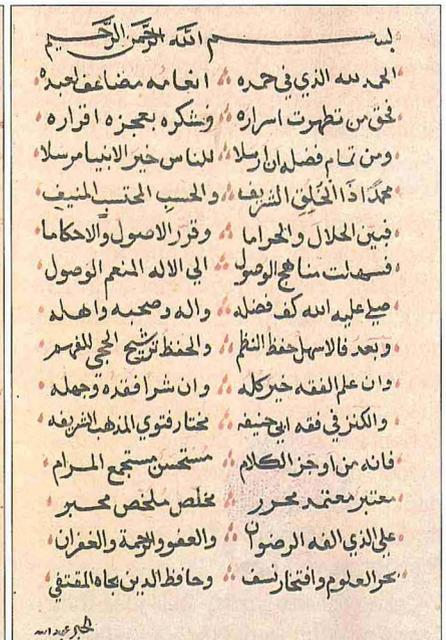 بسم الله الرحمن الرحيم
الحمد لله الذي في حمده انعامه مضاعف لعبده
فحق من تظهرت اسراره وشكره بعجزه اقراره
ومن تمام فضله ان ارسلا للناس خير الانبيا مرسلا
محمدا ذا الخلق الشريف والحسب المحتسب المنيف
فبين الحلال والحراما وقرر الاصول والاحكاما
فسهلت مناهج الوصول الي الاله المنعم الوصول
صلي عليه الله كف فضله واله وصحبه واهله
وبعد فالاسهل حفظ النظم والحفظ ترشيح الحجي للفهم
وان علم الفقه خير كله وان شرا فقده وجهله
والكنز في فقه ابي حنيفه مختار فتوي المذهب الشريفه
فانه من اوجز الكلام مستحسن مستجمع المرام
معتبر معتمد محرر مخلص ملخص محبر
علي الذي الفه الرضوان والعفو والرحمة والغفران
بحر العلوم وافتخار نسف وحافظ الدين بجاه المقتفي